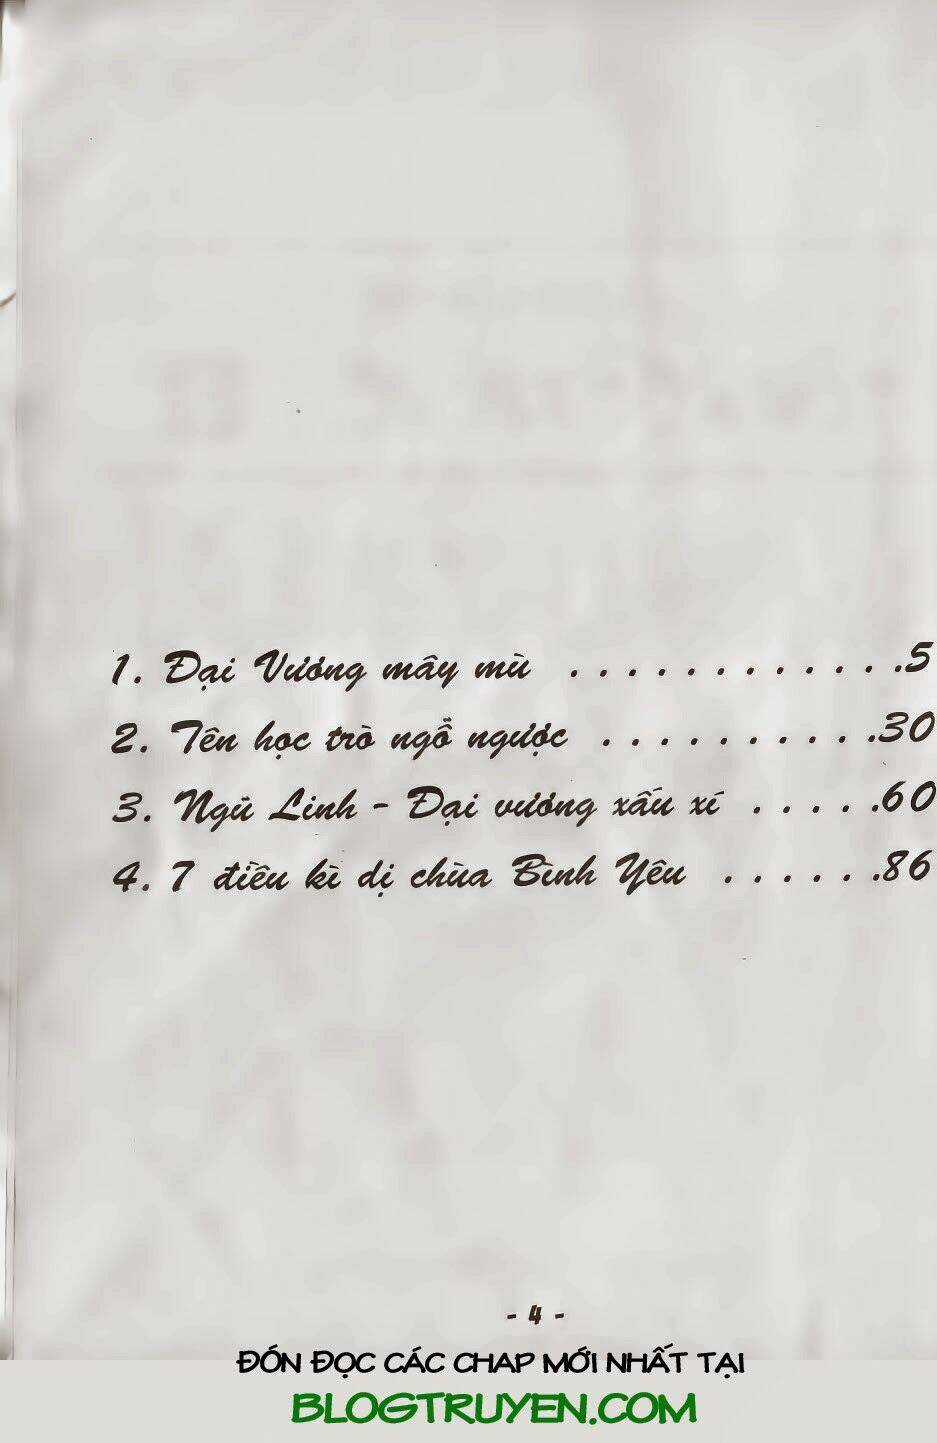 1. Đại Vương mây mù . . . . . . . . . . . .5
2. Tên học trò ngỗ ngược . . . . . . . . . .30
3. Ngũ Linh - Đại vương xấu xí . . . . .60
4. 7 điều kì dị chùa Bình Yên . . . . . .86
- 4 -
ĐÓN ĐỌC CÁC CHAP MỚI NHẤT TẠI
BLOGTRUYEN.COM